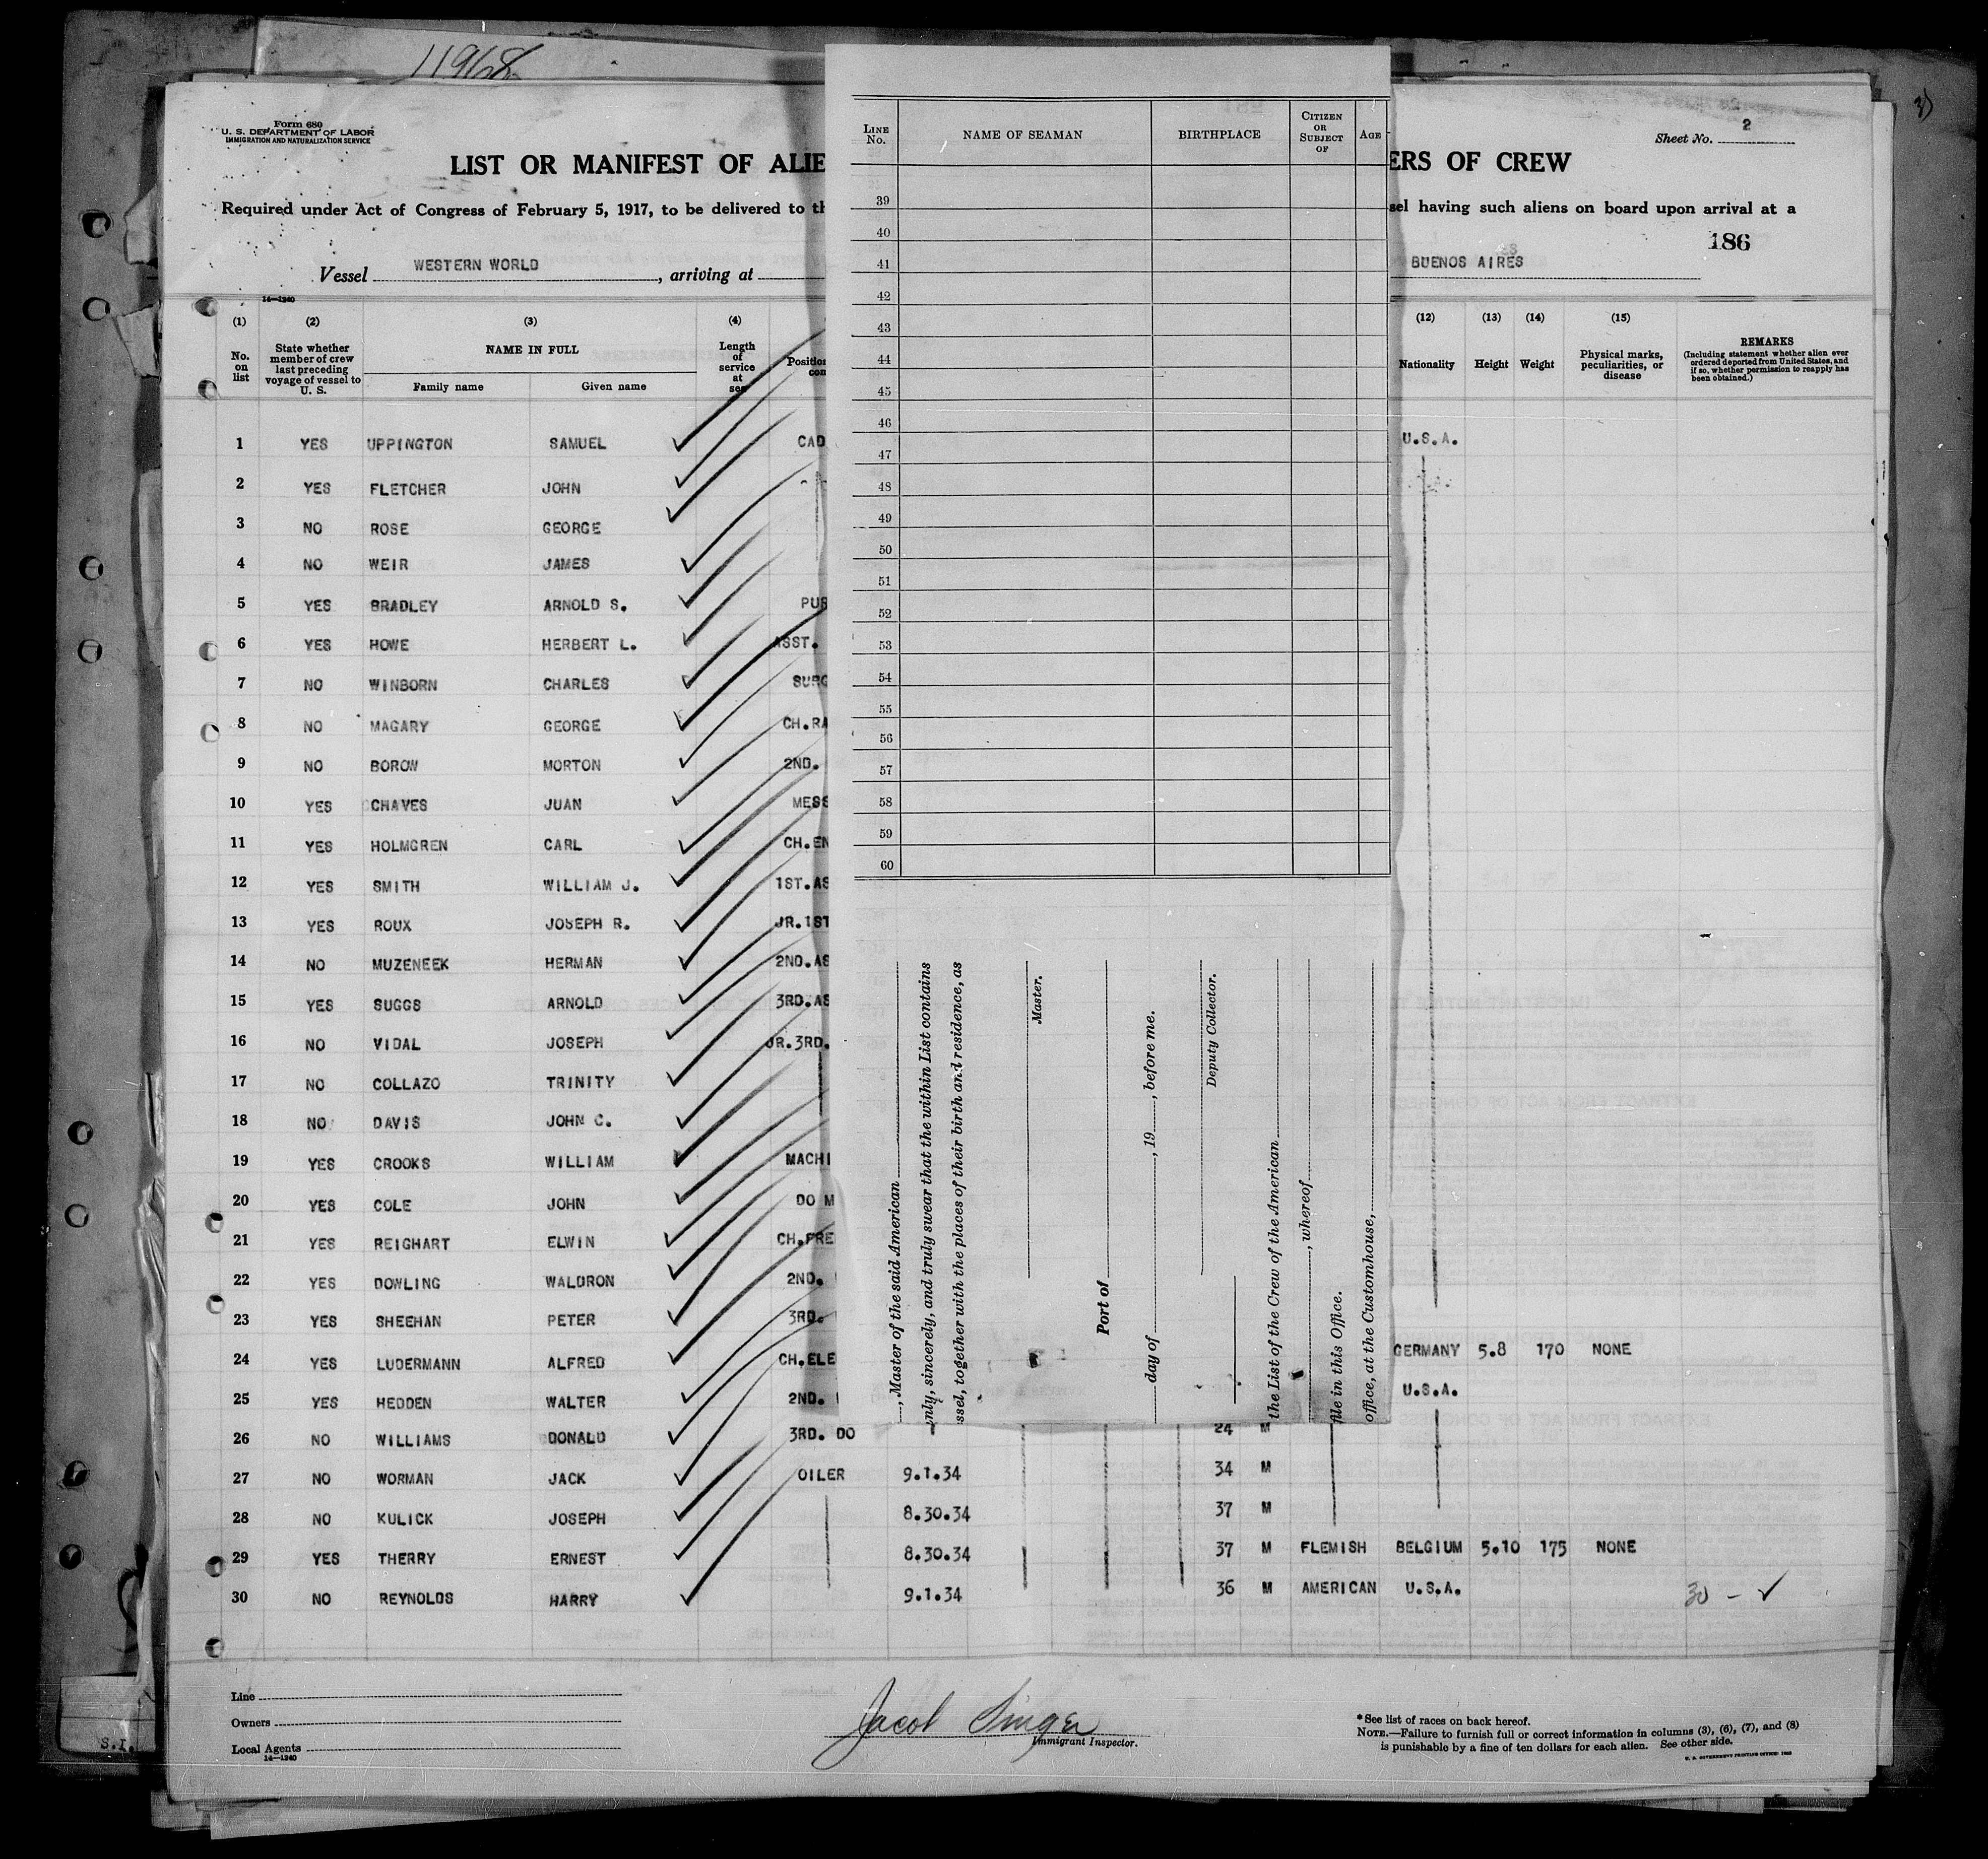 11968
Form 680
U. S. DEPARTMENT OF LABOR
IMMIGRATION AND NATURALIZATION SERVICE
Sheet No. 2
LIST OR MANIFEST OF ALIE
ERS OF CREW
Required under Act of Congress of February 5, 1917, to be delivered to th
sel having such aliens on board upon arrival at a
186
Vessel WESTERN WORLD, arriving at
BUENOS AIRES
14—1240
(1) (2) (3) (4)
No. on list
State whether member of crew last preceding voyage of vessel to U. S.
NAME IN FULL
Family name Given name
Length of service at sea
Position
com
(12) (13) (14) (15)
Nationality Height Weight
Physical marks, peculiarities, or disease
REMARKS
(Including statement whether alien ever ordered deported from United States, and if so, whether permission to reapply has been obtained.)
1 YES UPPINGTON SAMUEL CAD U.S.A.
2 YES FLETCHER JOHN
3 NO ROSE GEORGE
4 NO WEIR JAMES
5 YES BRADLEY ARNOLD S. PUR
6 YES HOWE HERBERT L. ASST.
7 NO WINBORN CHARLES SURG
8 NO MAGARY GEORGE CH.RA
9 NO BOROW MORTON 2ND.
10 YES CHAVES JUAN MESS
11 YES HOLMGREN CARL CH.EN
12 YES SMITH WILLIAM J. 1ST.AS
13 YES ROUX JOSEPH R. JR.1ST
14 NO MUZENEEK HERMAN 2ND.AS
15 YES SUGGS ARNOLD 3RD.AS
16 NO VIDAL JOSEPH JR.3RD.
17 NO COLLAZO TRINITY
18 NO DAVIS JOHN C.
19 YES CROOKS WILLIAM MACHI
20 YES COLE JOHN DO M
21 YES REIGHART ELWIN CH.FRE
22 YES DOWLING WALDRON 2ND.
23 YES SHEEHAN PETER 3RD.
24 YES LUDERMANN ALFRED CH.ELE GERMANY 5.8 170 NONE
25 YES HEDDEN WALTER 2ND. U.S.A.
26 NO WILLIAMS DONALD 3RD. DO 24 M
27 NO WORMAN JACK OILER 9.1.34 34 M
28 NO KULICK JOSEPH 8.30.34 37 M
29 YES THERRY ERNEST 8.30.34 37 M FLEMISH BELGIUM 5.10 175 NONE
30 NO REYNOLDS HARRY 9.1.34 36 M AMERICAN U.S.A. 30 - ✓
LINE No. NAME OF SEAMAN BIRTHPLACE CITIZEN OR SUBJECT OF AGE
39
40
41
42
43
44
45
46
47
48
49
50
51
52
53
54
55
56
57
58
59
60
, Master of the said American
nly, sincerely, and truly swear that the within List contains
ssel, together with the places of their birth and residence, as
Master.
Port of
day of , 19 , before me.
Deputy Collector.
the List of the Crew of the American
, whereof
file in this Office.
office, at the Customhouse,
Line
Owners
Local Agents
14—1240
Jacob Singer
Immigrant Inspector.
*See list of races on back hereof.
NOTE.—Failure to furnish full or correct information in columns (3), (6), (7), and (8)
is punishable by a fine of ten dollars for each alien. See other side.
S.I.